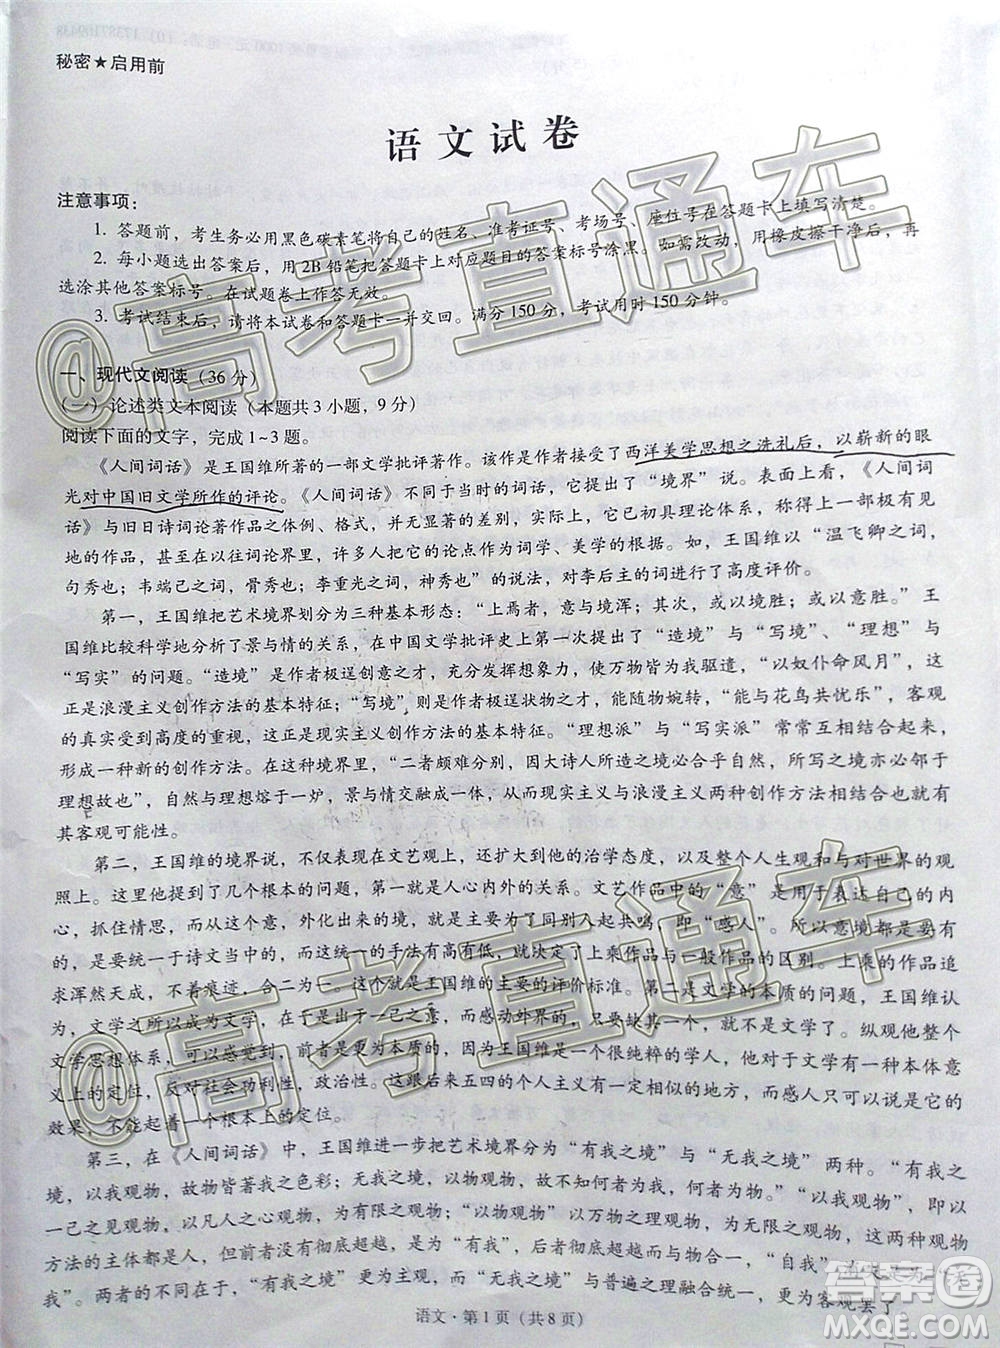 秘密★启用前
语文试卷
注意事项：
1. 答题前，考生务必用黑色碳素笔将自己的姓名、准考证号、考场号、座位号在答题卡上填写清楚。
2. 每小题选出答案后，用2B铅笔把答题卡上对应题目的答案标号涂黑。如需改动，用橡皮擦干净后，再
选涂其他答案标号。在试题卷上作答无效。
3. 考试结束后，请将本试卷和答题卡一并交回。满分150分，考试用时150分钟。
一、现代文阅读（36分）
（一）论述类文本阅读（本题共3小题，9分）
阅读下面的文字，完成1~3题。
《人间词话》是王国维所著的一部文学批评著作。该作是作者接受了西洋美学思想之洗礼后，以崭新的眼
光对中国旧文学所作的评论。《人间词话》不同于当时的词话，他提出了“境界”说。表面上看，《人间词
话》与旧日诗词论著作品之体例、格式，并无显著的差别，实际上，它已初具理论体系，称得上屈指可数
地的作品，甚至在以往词论界里，许多人把它的论点作为词学、美学的根据。如，王国维以“温飞卿之词，
句秀也；韦端己之词，骨秀也；李重光之词，神秀也”的说法，对李后主的词进行了高度评价。
第一，王国维把艺术境界划分为三种基本形态：“上焉者，意与境浑；其次，或以境胜；或以意胜。”王
国维比较科学地分析了景与情的关系，在中国文学批评史上第一次提出了“造境”与“写境”、“理想”与
“写实”的问题。“造境”是作者极逞创意之才，充分发挥想象力，使万物皆为我驱遣，“以奴仆命风月”，这
正是浪漫主义创作方法的基本特征；“写境”则是作者极逞状物之才，能随物婉转，“能与花鸟共忧乐”，客观
的真实受到高度的重视，这正是现实主义创作方法的基本特征。“理想派”与“写实派”常常互相结合起来，
形成一种新的创作方法。在这种境界里，“二者颇难分别，因大诗人所造之境必合乎自然，所写之境亦必邻于
理想故也”，自然与理想熔于一炉，景与情交融成一体，从而现实主义与浪漫主义两种创作方法相结合就有
其客观可能性。
第二，王国维的境界说，不仅表现在文艺观上，还扩展到他的治学态度，以及整个人生观和与对世界的观
照上。这里他提到了几个根本的问题，第一是人心内外的关系。文艺作品中的“意”是主要的，作者以己之
心，抓住情思，而这个意，外化出来的境，就成了同别人起共鸣，即“感人”。所以意境都是作者
的，是统一于诗文当中的，而这统一的手法有高有低，就决定了上乘作品与一般作品的区别。上乘的作品，追
求浑然天成，不着痕迹，合二为一。这就是王国维的评价标准。第二是文学的本质的问题，王国维认
为，文学之所以成为文学，在于出于一己之意，而感动外界的，没有功利的，是真正的文学。纵观他整个
文学思想体系，可以感觉到，王国维是一个很纯粹的学人，他对于文学有一种本体意义
上的定位，反对社会功利性，政治性。这跟后来五四的个人主义有些相似的地方，而感人只可以是文学的
效果，不能起着一个根本上的定位。
第三，在《人间词话》中，王国维进一步把艺术境界分为“有我之境”与“无我之境”两种。“有我之
境，以我观物，故物皆著我之色彩；无我之境，以物观物，故不知何者为我，何者为物。”“以我观物”，即以
一己之见观物，以凡人之心观物，为有限之观物；“以物观物”以万物之理观物，为无限之观物，故而这两种
方法的主体都是人，但前者没有彻底超越，是为“有我”，后者彻底超越而与物合一，“自我”消失是为“无
我”。两者的不同在于，“有我之境”更为主观，而“无我之境”与普遍之理合统一，更为客观罢了。
语文·第1页（共8页）
@高考直通车
@高考直通车
答案圈
MXQE.COM